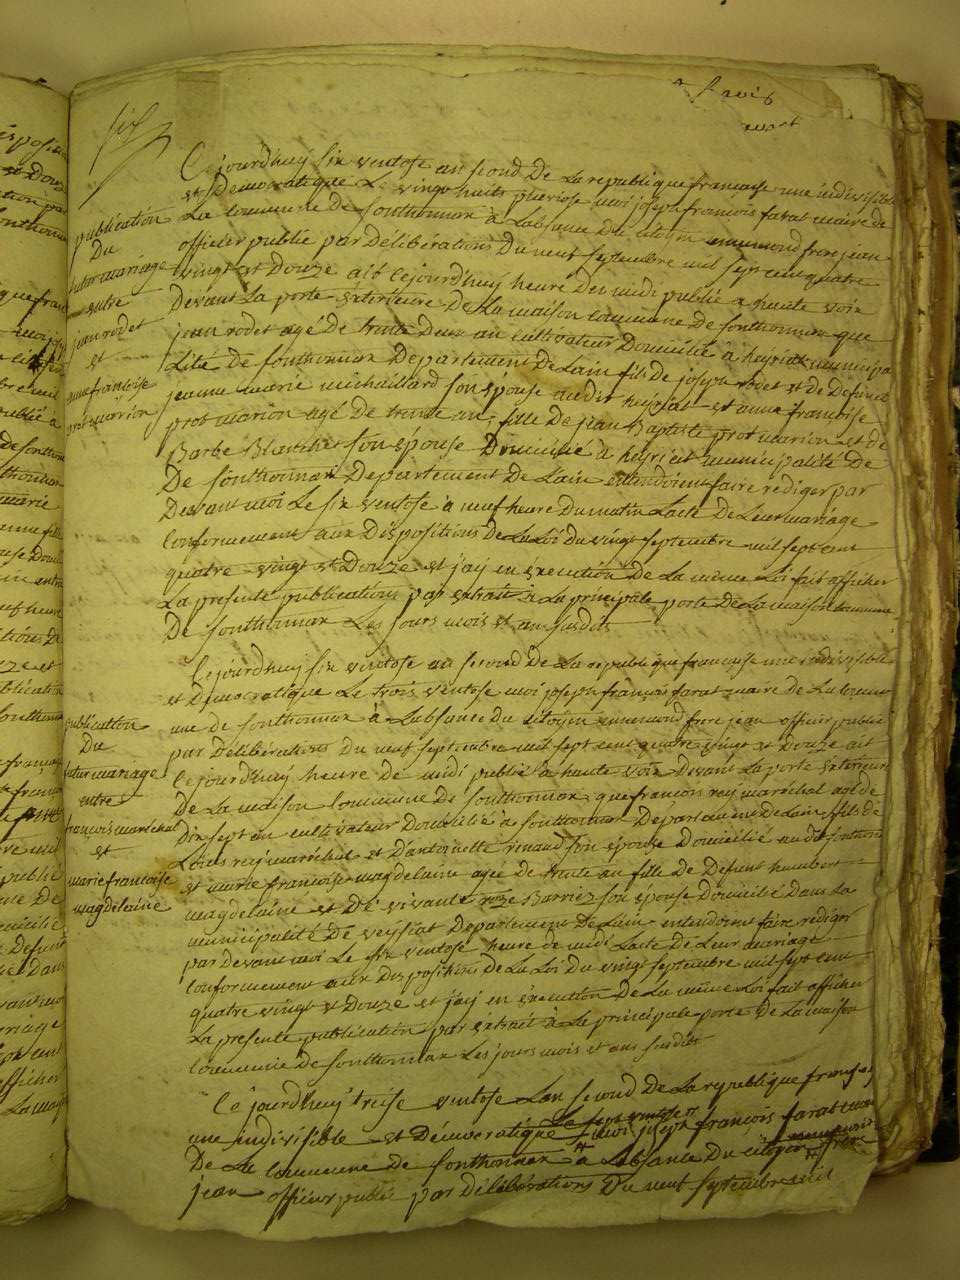 six
Cejourdhuy six ventose an second De La republique française une indivisible
et Democratique Le vingt huits pluviose moi joseph françois farat maire de
La commune de sonthonnax à Labsence Du citoien ennemond frere jean
officier publié par Délibérations Du neuf septembre mil sept cent quatre
vingt et Douze ait cejourd'huy heure De midi publié a haute voix
Devant La porte Exterieure De La maison Commune De sonthonnax que
jean rodet agé de trente Deux an cultivateur Domicilié à heyriat municipa
Lité De sonthonnax Departement De Lain fils de joseph rodet et de Defunct
jeanne marie michaillard son epouse audit heyriat et anne françoise
prot marion agé De trente an, fille De jean Baptiste prot marion et de
Barbe Blanchet son épouse Domicilié à heyriat municipalité De
De sonthonnax Departement De Lain entendoient faire rediger par
Devant moi Le six ventose à neuf heure Du matin Lacte De Leur mariage
conformement aux Dispositions De La Loi Du vingt septembre mil sept cent
quatre vingt et Douze et jay en éxecution De La même Loi fait afficher
La presente publications par extrait à La principale porte De La maison commune
De sonthonnax Les jours mois et an susdits
publication
Du
futur mariage
entre
jean rodet
et
anne françoise
prot marion
Cejourdhuy six ventose an second De La republique française une indivisible
et Democratique Le trois ventose moi joseph françois farat maire de La commu
une de sonthonnax à Labsence Du Citoyen ennemond frere jean officier publié
par Délibérations Du neuf septembre mil sept cent quatre vingt et Douze ait
Cejourd'huy heure De midi publié à haute voix Devant La porte exterieure
De La maison Commune De sonthonnax, que françois rey maréchal agé de
Dix sept an cultivateur Domicilié à sonthonnax Departement De Lain, fils de
Louis rey maréchal et D'antoinette renaud son épouse Domicilié audit sonthonn
et marie françoise magdelaine agée De trente an fille De Defunt humbert
magdelaine et De vivante Barriez son épouse Domicilié Dans La
municipalité De veissiat Departement De Lain entendoient faire rediger
par devant moi Le six ventose heure de midi Lacte De Leur mariage
conformement aux Dispositions De La Loi Du vingt septembre mil sept cent
quatre vingt et Douze et jay en éxecution De La même Loi fait afficher
La presente publication par extrait à Le principale porte De La maison
commune De sonthonnax Les jours mois et ans susdits
publication
Du
futur mariage
entre
françois maréchal
et
marie françoise
magdelaine
Ce jourdhuy treise ventose Lan second De La republique française
une indivisible et Démocratique moi joseph françois farat maire
De La commune de sonthonnax à Labsence Du Citoyen ennemond frere
jean officier publié par délibérations Du neuf septembre mil